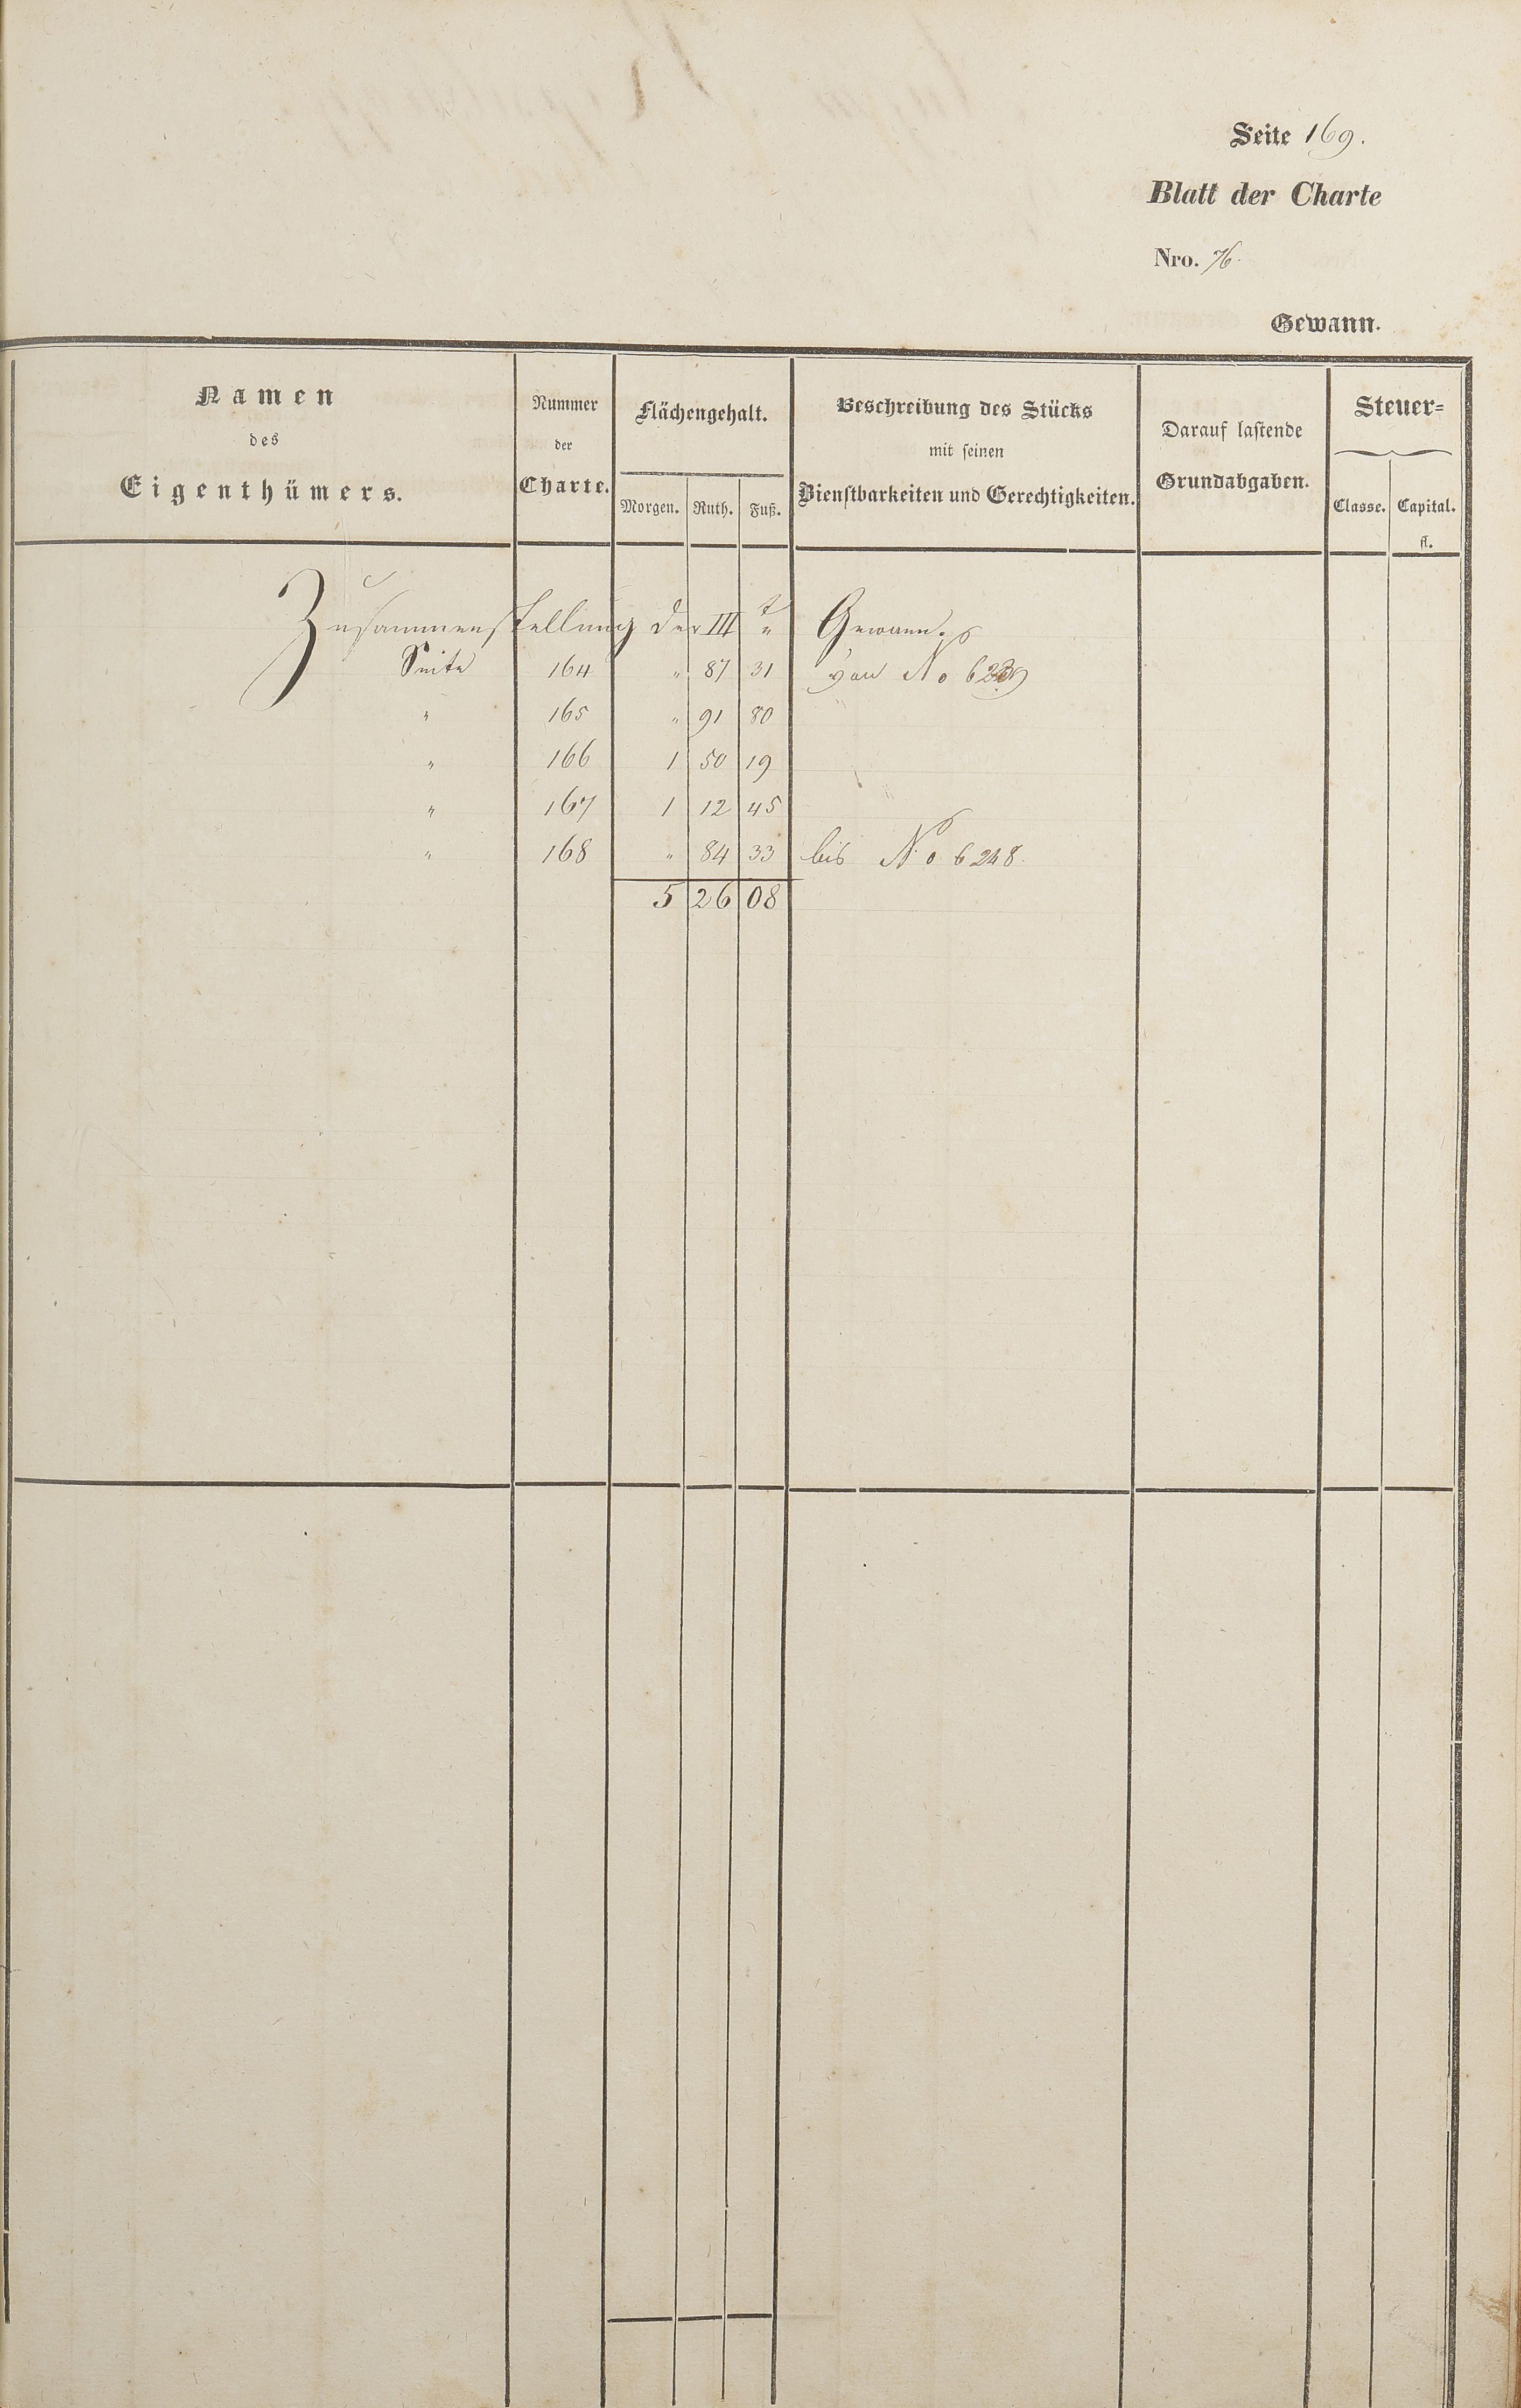 Seite 169.
Blatt der Charte
Nro. 76.
Gewann.
Namen des Eigenthümers.
Nummer der Charte.
Flächengehalt.
Morgen. Ruth. Fuß.
Beschreibung des Stücks mit seinen Dienstbarkeiten und Gerechtigkeiten.
Darauf lastende Grundabgaben.
Steuer=
Classe. Capital.
fl.
Zusammenstellung der III t " Gewann.
Seite 164 " 87 31 von No
" 165 " 91 80
" 166 1 50 19
" 167 1 12 45
" 168 " 84 33 bis No 6248.
5 26 08